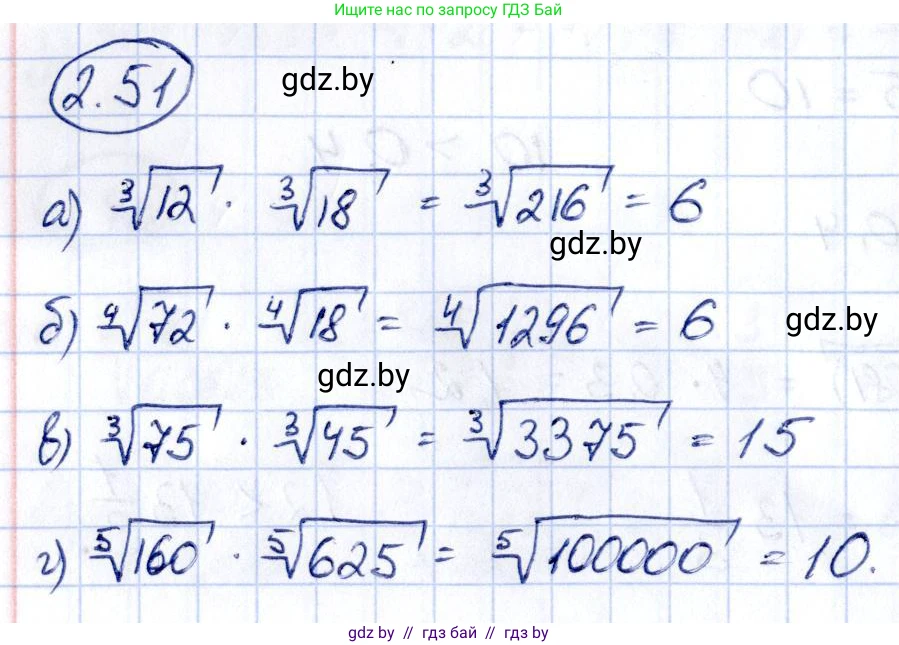 Ищите нас по запросу ГДЗ Бай
2.51
gdz.by
а) ∛12 · ∛18 = ∛216 = 6
gdz.by
б) ∜72 · ∜18 = ∜1296 = 6
gdz.by
gdz.by
в) ∛75 · ∛45 = ∛3375 = 15
г) ⁵√160 · ⁵√625 = ⁵√100000 = 10.
gdz.by // гдз бай // гдз by